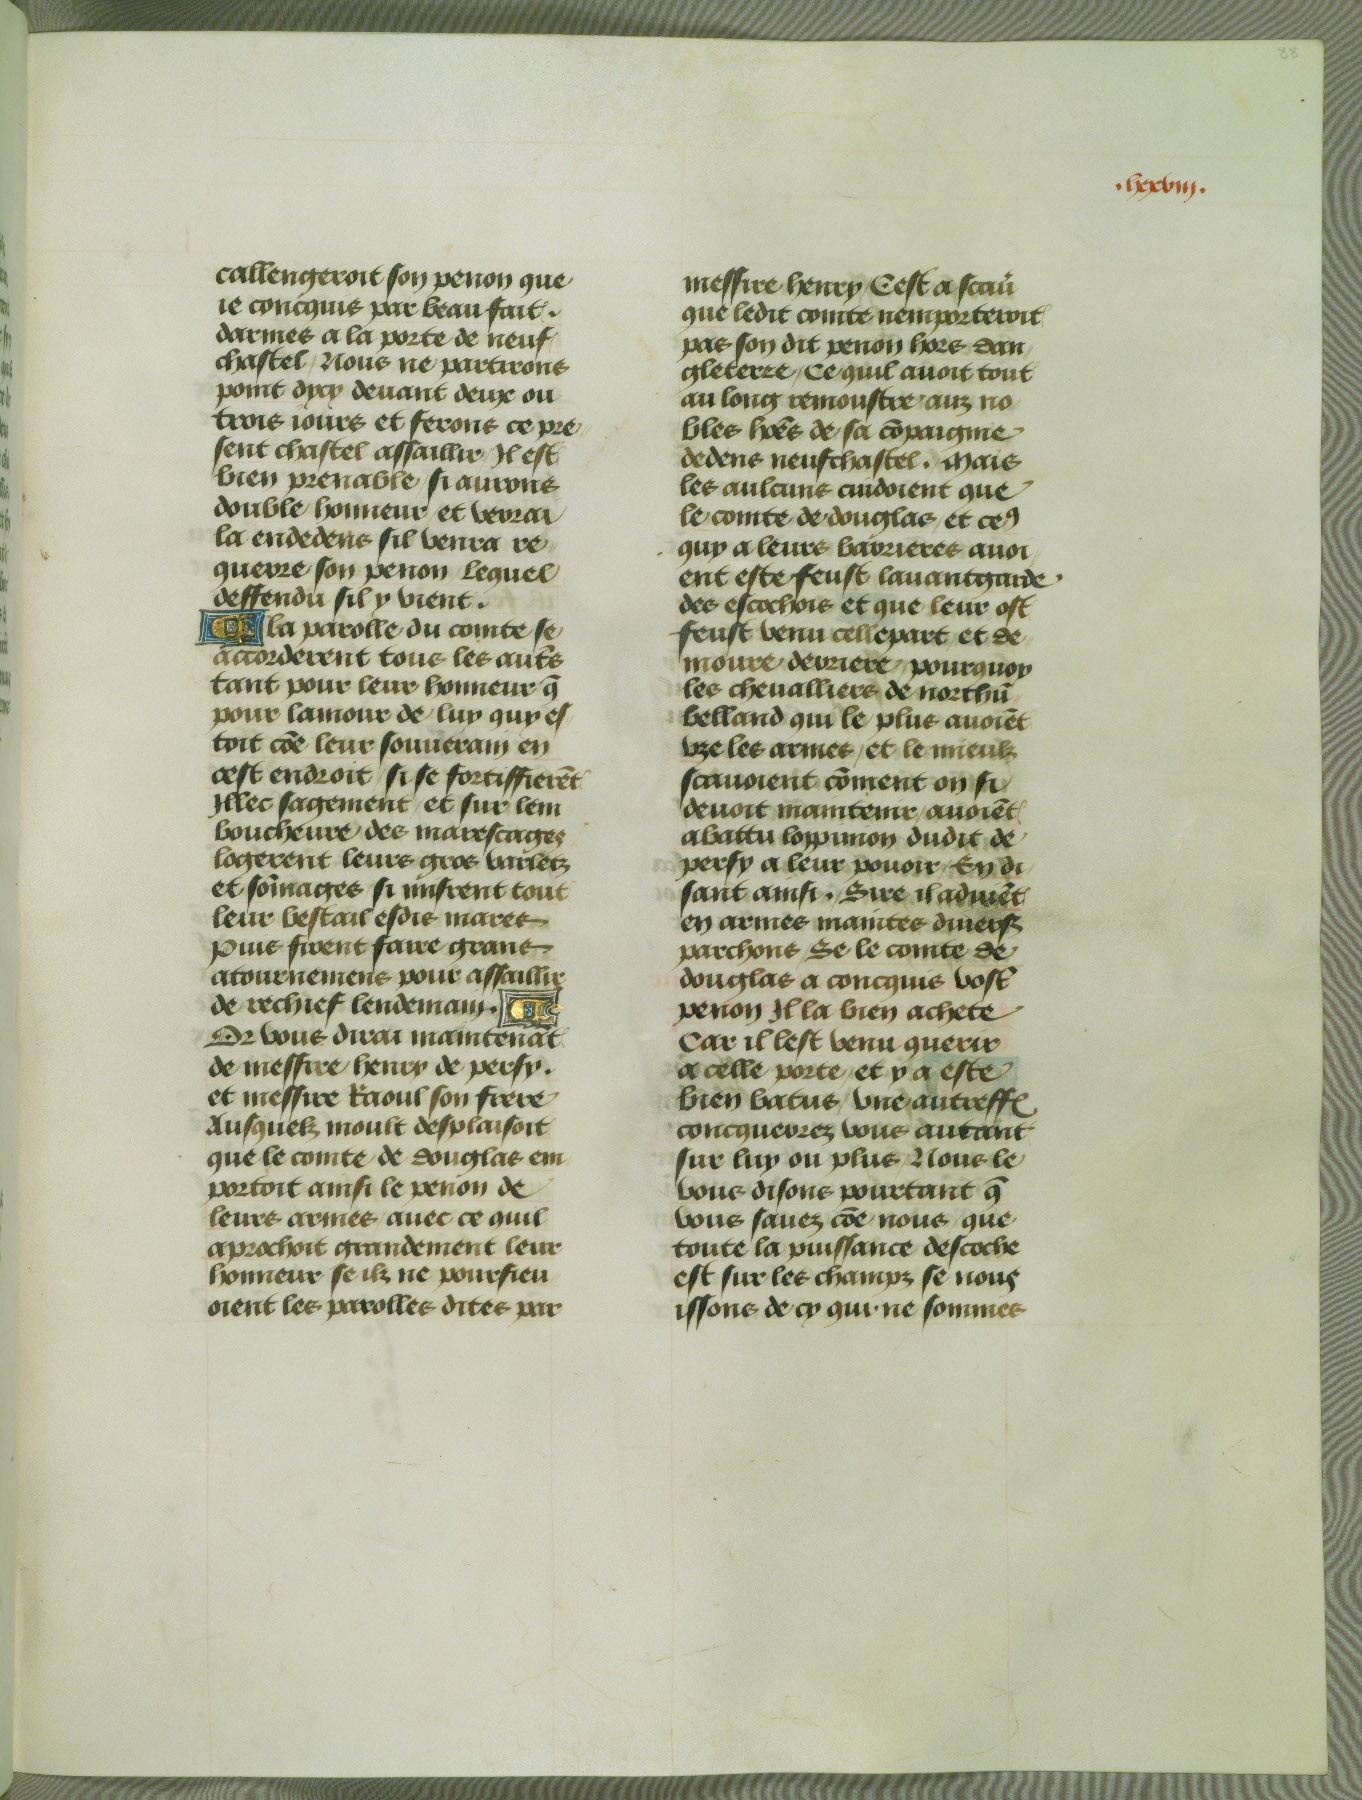 88
.lxxxviij.
callengeroit son penon que
ie concquis par beau fait.
darmes a la porte de neuf
chastel / Nous ne partirons
point dycy deuant deux ou
trois iours et ferons ce pre
sent chastel assaillir / Il est
bien prenable si aurons
double honneur / et verrai
la endedens sil venra re
querre son penon Lequel
deffendu sil y vient.
la parolle du comte se
accorderent tous les autẽs
tant pour leur honneur q̃
pour lamour de luy quy es
toit cõe leur souuerain en
cest endroit / si se fortiffierẽt
Illec sagement et sur lem
boucheure des marescages
logerent leurs gros varletz
et sõmages si misrent tout
leur bestail esdis mares
Puis firent faire grans
atournemens pour assaillir
de rechief lendemain.
Or vous dirai maintenãt
de messire henry de persy.
et messire Raoul son frere
Ausquelz moult desplaisoit
que le comte de douglas em
portoit ainsi le penon de
leurs armes auec ce quil
aprochoit grandement leur
honneur se ilz ne poursieu
oient les parolles dites par
messire henry / Cest a scau᷑
que ledit comte nemporteroit
pas son dit penon hors dan
gleterre / Ce quil auoit tout
au long remoustre auz no
bles hões de sa cõpaignie
dedens neufchastel. Mais
les aulcuns cuidoient que
le comte de douglas et ceꝰ
quy a leurs barrieres auoi
ent este feust lauantgarde
des escochois et que leur ost
feust venu cellepart et de
moure derriere / pourquoy
les cheualliers de northũ
belland qui le plus auoiẽt
vze les armes / et le mieulz
scauoient cõment on si
deuoit maintenir / auoiẽt
abattu loppinion dudit de
persy a leur pouoir / En di
sant ainsi. Sire il aduiẽt
en armes maintes diuerses
parchons Se le comte de
douglas a concquis vost᷑
penon Il la bien achete
Car il lest venu querir
a celle porte / et y a este
bien batus / Vne autreffͤ
concquerrez vous autant
sur luy ou plus / Nous le
vous disons pourtant q̃
vous sauez cõe nous que
toute la puissance descoche
est sur les champz se nous
issons de cy qui ne sommes